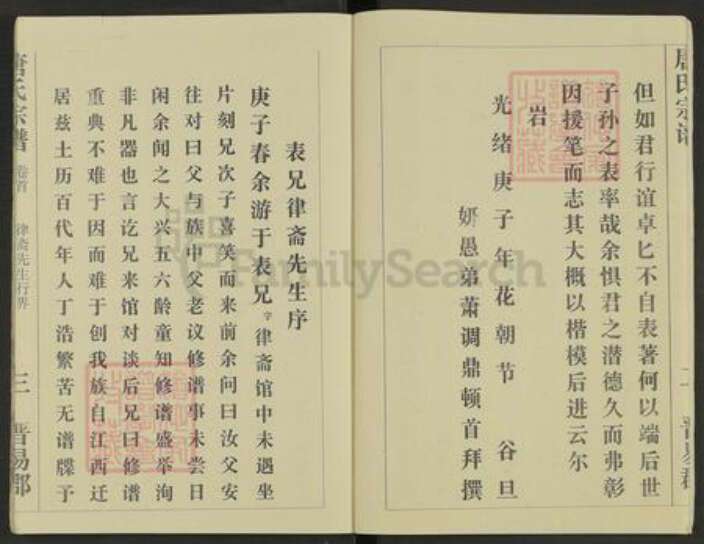 唐氏宗谱
但如君行谊卓匕不自表著何以端后世
子孙之表率哉余惧君之潜德久而弗彰
因援笔而志其大概以楷模后进云尔
岩
光绪庚子年花朝节 谷旦
妍愚弟萧调鼎顿首拜撰
唐氏宗谱 卷首 律斋先生行界 三 晋易郡
表兄律斋先生序
庚子春余游于表兄字律斋馆中未遇坐
片刻兄次子喜笑而来前余问曰汝父安
往对曰父与族中父老议修谱事未尝日
闲余闻之大兴五六龄童知修谱盛举洵
非凡器也言讫兄来馆对谈后兄曰修谱
重典不难于因而难于创我族自江西迁
居兹土历百代年人丁浩繁苦无谱牒予
FamilySearch